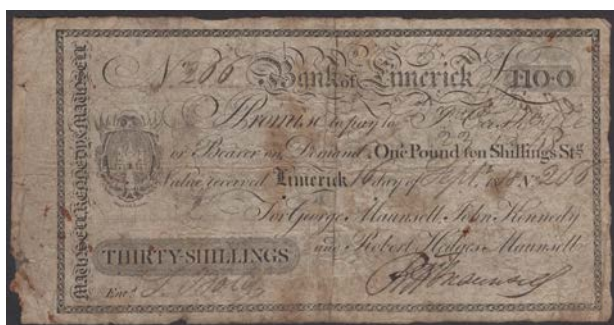 MAUNSELL KENNEDY & MAUNSELL
No. 266 Bank of Limerick £1·10·0
I Promise to pay to
or Bearer on Demand One Pound ten Shillings Stg
Value received Limerick 16 day of Septr No. 266
For George Maunsell John Kennedy
and Robert Hedges Maunsell
THIRTY-SHILLINGS
Entd